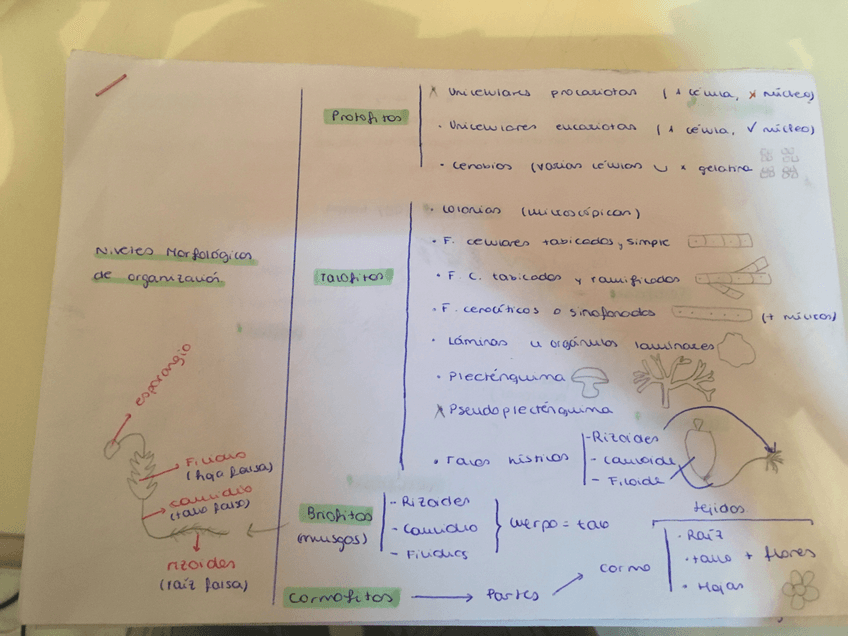 Niveles Morfológicos
de organización
Protofitos
x Unicelulares procariotas (1 célula, x núcleo)
· Unicelulares eucariotas (1 célula, ✓ núcleo)
· Cenobios (varias células ∪ x gelatina
Talofitos
· Colonias (microscópicas)
· F. celulares tabicados, simple
· F. C. tabicados y ramificados
· F. cenocíticos o sinofonados (+ núcleos)
· Láminas u orgánulos laminares
· Plecténquima
x Pseudoplecténquima
· Talos hísticos
- Rizoides
- Cauloide
- Filoide
Briofitos
(musgos)
- Rizoides
- Caulidio
- Filidios
cuerpo = talo
Cormofitos → Partes → cormo
tejidos
· Raíz
· tallo + flores
· Hojas
esporangio
Filidio
(hoja falsa)
caulidio
(tallo falso)
rizoides
(raíz falsa)